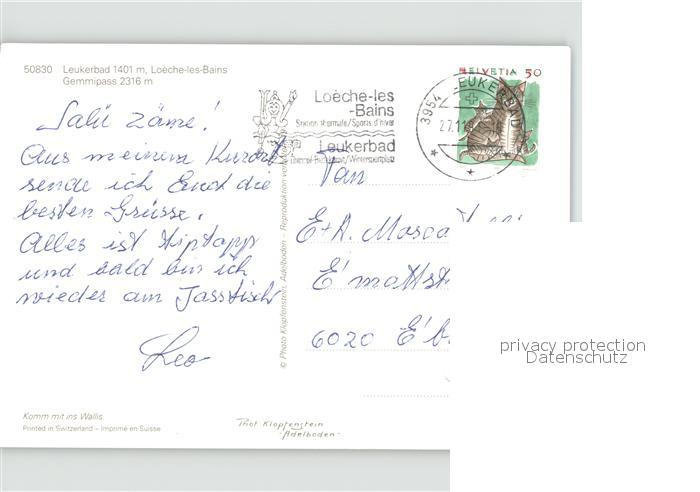 50830 Leukerbad 1401 m, Loèche-les-Bains
Gemmipass 2316 m
Loèche-les
-Bains
Station thermale/Sports d'hiver
Leukerbad
Thermal-Badekurort/Wintersportplatz
3954 LEUKERBAD
27.11
HELVETIA 50
Salü zäme!
Aus meinem Kurort
sende ich Euch die
besten Grüsse.
Alles ist tiptopp
und bald bin ich
wieder am Jasstisch
Leo
Fam
E+A. Mosca
E'mattst
6020 E'b
© Photo Klopfenstein, Adelboden - Reproduktion
Komm mit ins Wallis
Printed in Switzerland – Imprimé en Suisse
Phot Klopfenstein
Adelboden
privacy protection
Datenschutz